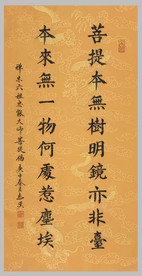 菩提本無樹明鏡亦非臺
本來無一物何處惹塵埃
佛宗六祖惠能大師菩提偈